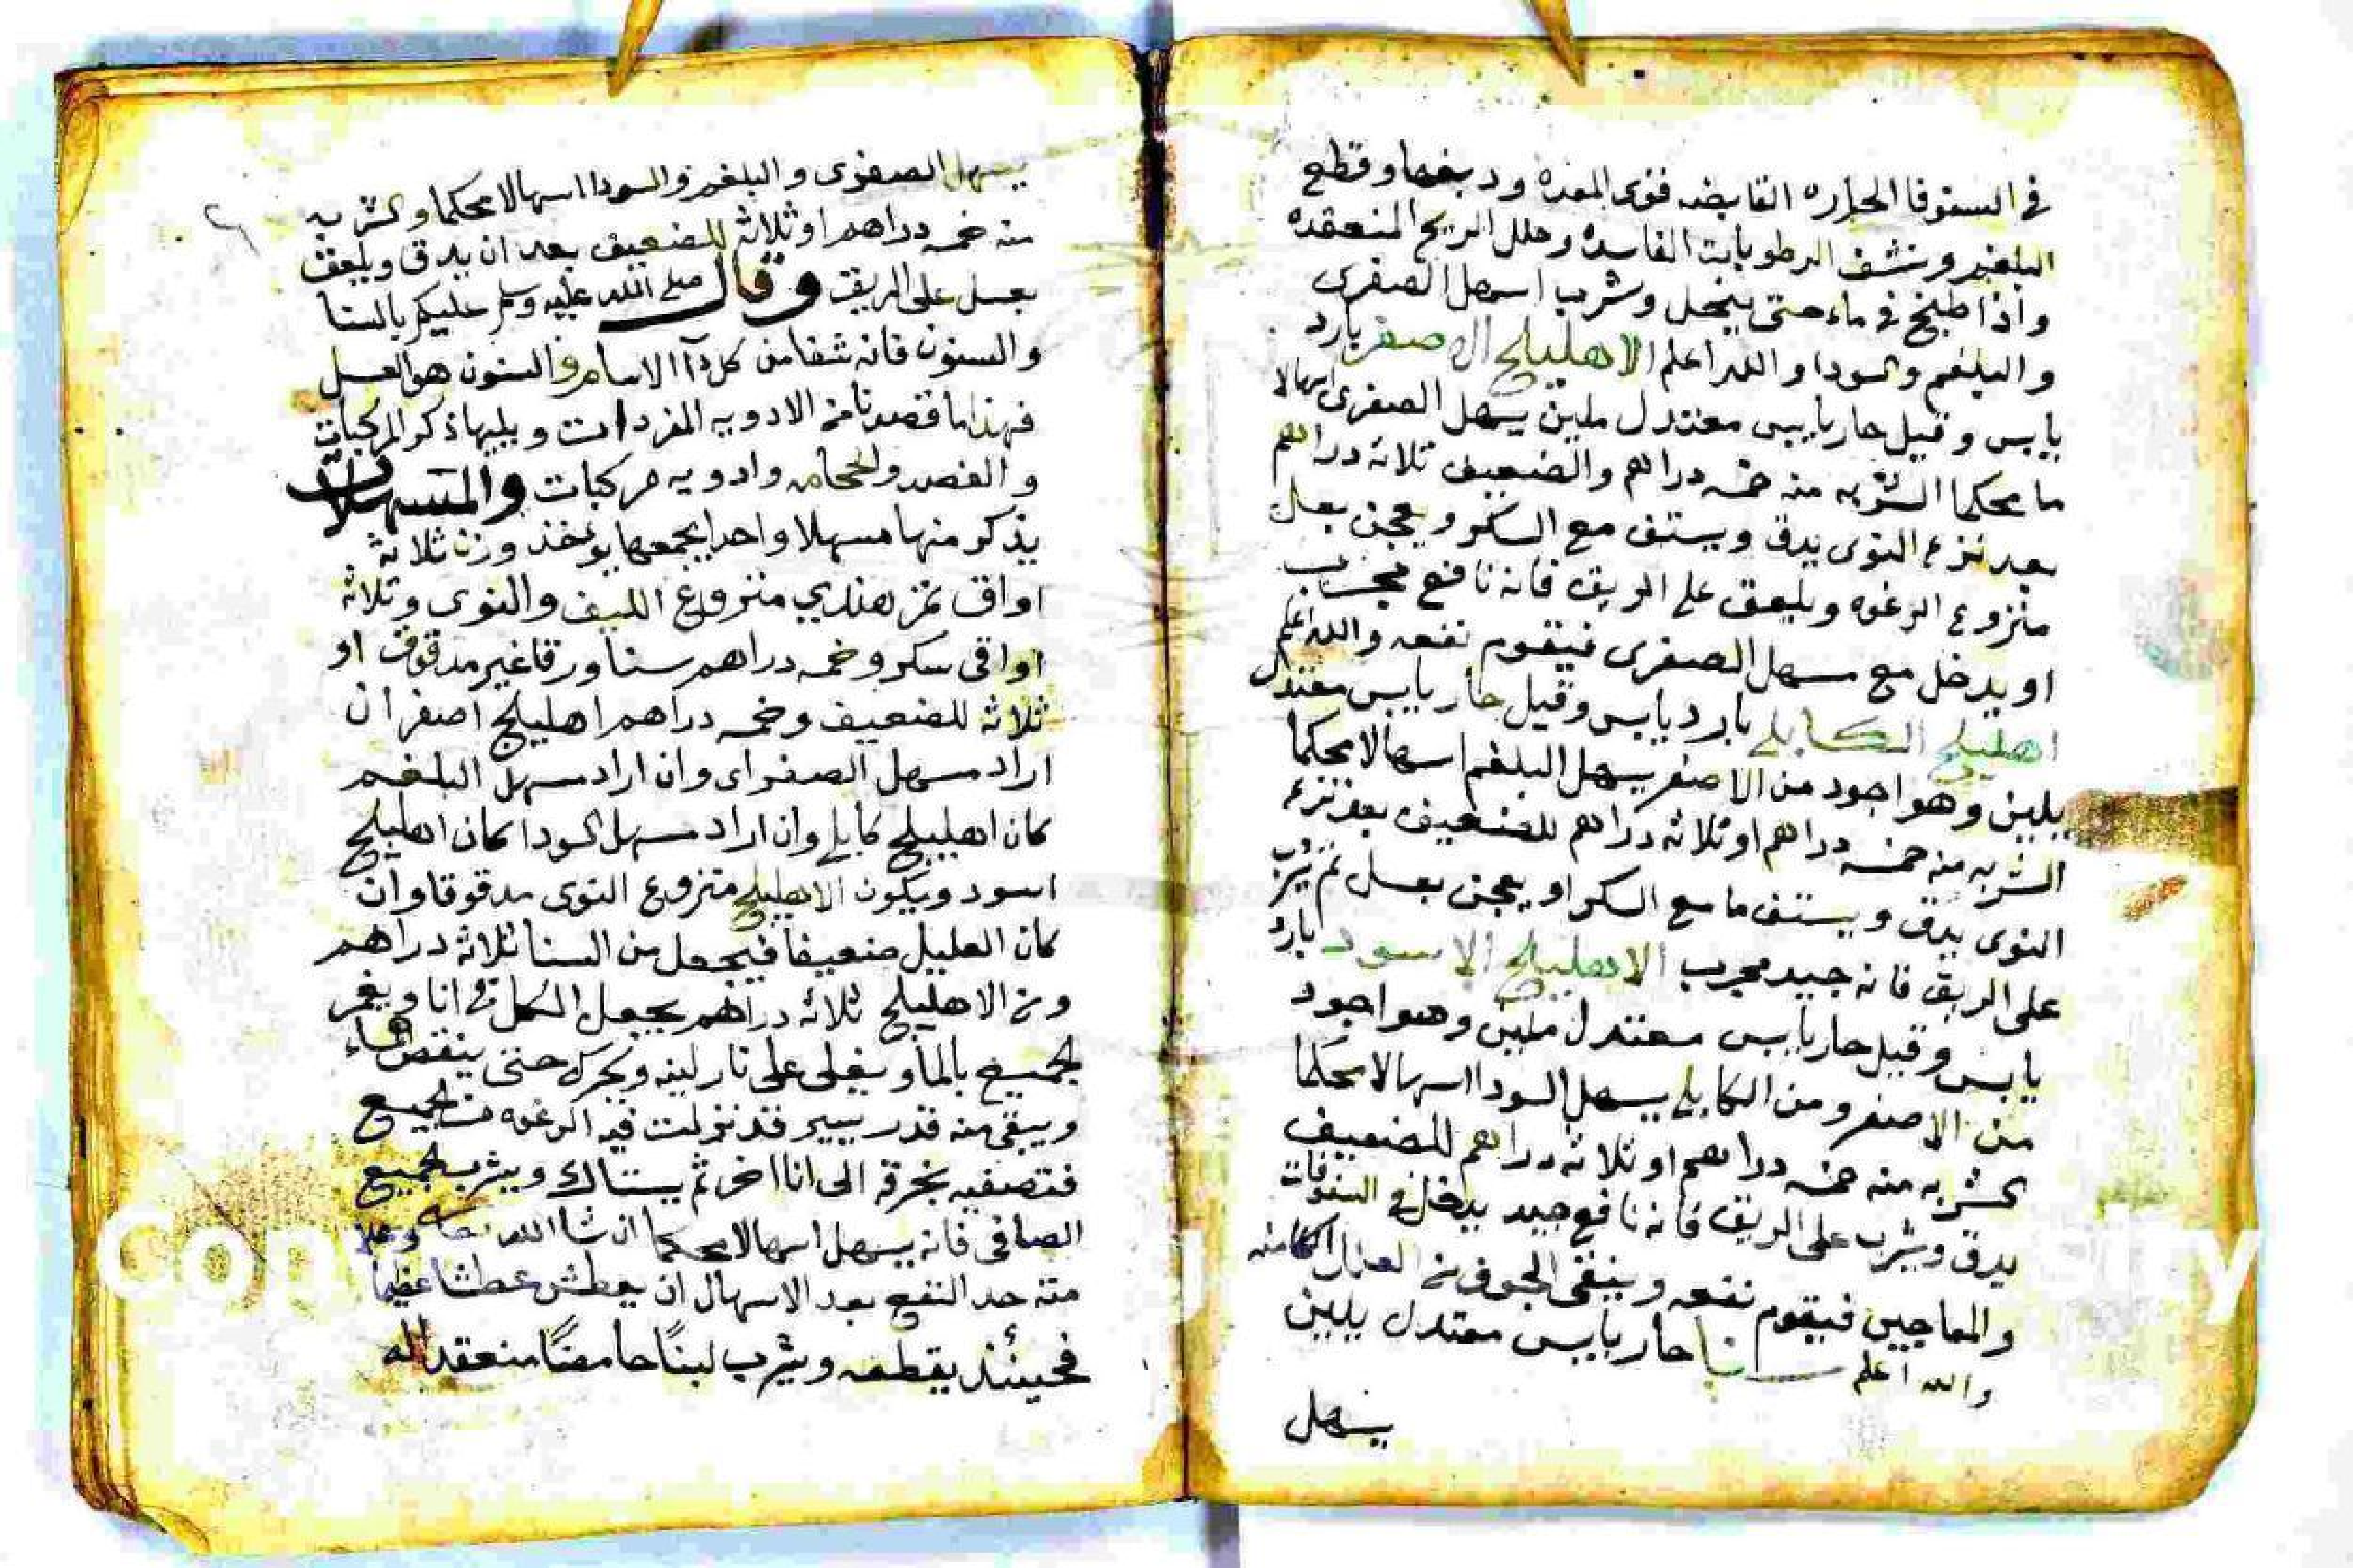 في السفوفا الحاره القابضه فقوى المعده ودبغها وقطع
البلغم ونشف الرطوبات الفاسده وحلل الريح المنعقده
واذا طبخ في ماء حتى ينحل وشرب اسهل الصفرى
والبلغم والسودا والله اعلم الاهليلج الاصفر بارد
يابس وقيل حار يابس معتدل ملين يسهل الصفرى اسهالا
ما محكما الشربه منه خمسه دراهم والضعيف ثلاثه دراهم
بعد نزع النوى يدق ويستف مع السكر ويعجن بعسل
منزوع الرغوه ويلعق على الريق فانه نافع مجرب
او يدخل مع مسهل الصفرى فيقوم نفعه والله اعلم
اهليلج الكابلي بارد يابس وقيل حار يابس معتدل
يلين وهو اجود من الاصفر يسهل البلغم اسهالا محكما
الشربه منه خمسه دراهم او ثلاثه دراهم للضعيف بعد نزع
النوى يدق ويستف ما مع السكر او يعجن بعسل ثم يشرب
على الريق فانه جيد مجرب الاهليلج الاسود بارد
يابس وقيل حار يابس معتدل ملين وهو اجود
من الاصفر ومن الكابلي يسهل السودا اسهالا محكما
الشربه منه خمسه دراهم او ثلاثه دراهم للضعيف
يدق ويشرب على الريق فانه نافع جيد يدخل في السفوفات
والمعاجين فيقوم نفعه وينقى الجوف من العلل الكامنه
والله اعلم سنا حار يابس معتدل يلين
يسهل
يسهل الصفرى والبلغم والسودا اسهالا محكما والشربه
منه خمسه دراهم او ثلاثة للضعيف بعد ان يدق ويلعق
بعسل على الريق وقال صلى الله عليه وسلم عليكم بالسنا
والسنوت فانه شفا من كل دآ الا السام والسنوت هو العسل
فهذا ما قصدنا من الادويه المفردات ويليها ذكر المركبات
والفصد والحجامه وادويه مركبات والمسهلات
يذكر منها مسهلا واحدا يجمعها يوخذ وزن ثلاثة
اواق تمر هندي منزوع الليف والنوى وثلاثة
اواقى سكر وخمسه دراهم سنا ورقا غير مدقوق او
ثلاثة للضعيف وخمسه دراهم اهليلج اصفر ان
اراد مسهل الصفراى وان اراد مسهل البلغم
كان اهليلج كابلي وان اراد مسهل السودا كان اهليلج
اسود ويكون الاهليلج منزوع النوى مدقوقا وان
كان العليل ضعيفا فيجعل من السنا ثلاثة دراهم
ومن الاهليلج ثلاثة دراهم يجعل الكل في انا ويغمر
الجميع بالما ويغلى على نار لينه ويحرك حتى ينقص الماء
ويبقى منه قدر يسير قد نزلت فيه الرغوه من الجميع
فتصفيه بخرقة الى انا اخر ثم يستاك ويشرب الجميع
الصافى فانه يسهل اسهالا محكما ان شا الله تعالى
منه حد النفع بعد الاسهال ان يعطش عطشا عظيما
فحينئذ يقطعه ويشرب لبنًا حامضًا منعقدا